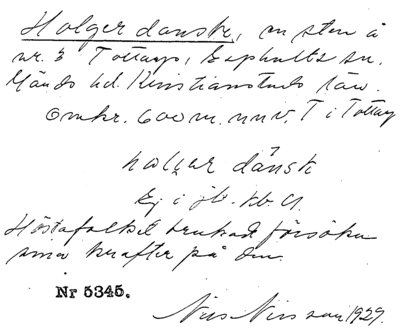 Holger danske, en sten å
nr. 3 Tottarp, Loshults sn.
Göinds hd. Kristianstads län.
Omkr. 600 m. nnv. T i Tottarp
holgər dánsk
Ej i jb. kb. A
Höstafolket brukad försöka
sina krafter på den
Nr 5345.
Nils Nilsson 1929.